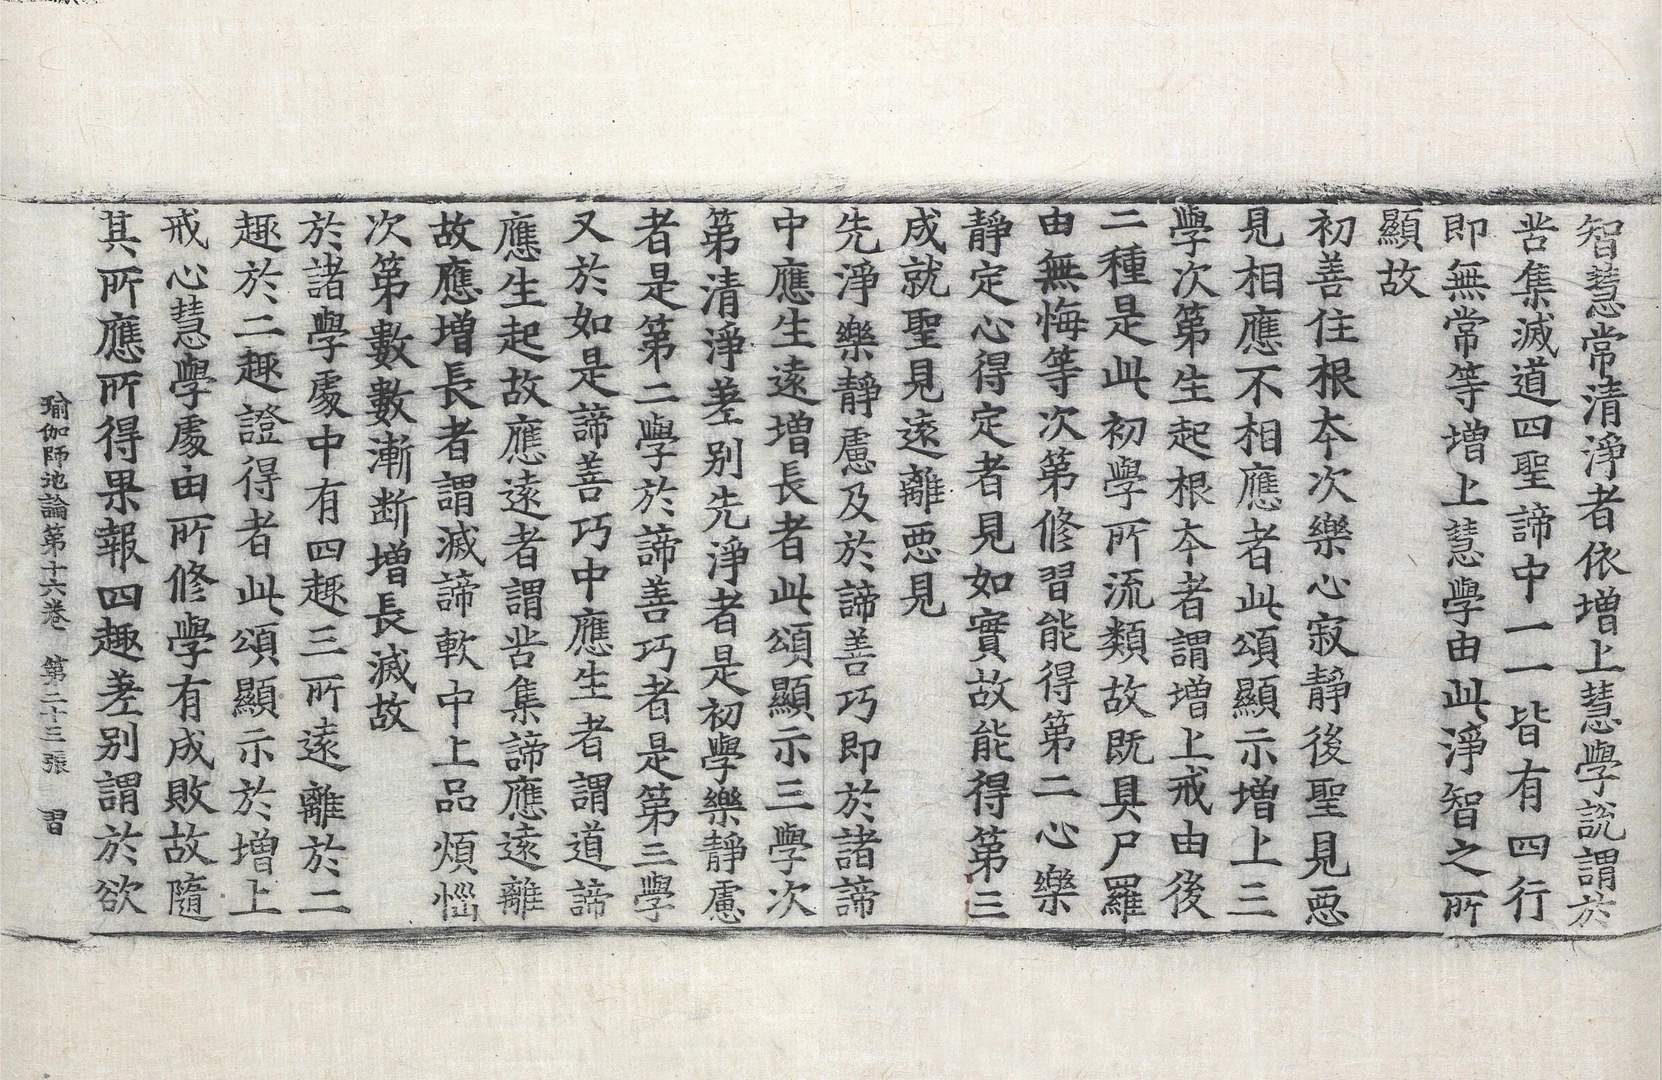 智慧常清淨者依增上慧學説謂於
苦集滅道四聖諦中一一皆有四行
即無常等增上慧學由此淨智之所
顯故
初善住根本次樂心寂靜後聖見惡
見相應不相應者此頌顯示增上三
學次第生起根本者謂增上戒由後
二種是此初學所流類故既具尸羅
由無悔等次第修習能得第二心樂
靜定心得定者見如實故能得第三
成就聖見遠離惡見
先淨樂靜慮及於諦善巧即於諸諦
中應生遠增長者此頌顯示三學次
第清淨差别先淨者是初學樂靜慮
者是第二學於諦善巧者是第三學
又於如是諦善巧中應生者謂道諦
應生起故應遠者謂苦集諦應遠離
故應增長者謂滅諦軟中上品煩惱
次第數數漸断增長滅故
於諸學處中有四趣三所遠離於二
趣於二趣證得者此頌顯示於增上
戒心慧學處由所修學有成敗故隨
其所應所得果報四趣差别謂於欲
瑜伽師地論第十六卷 第二十三張 習